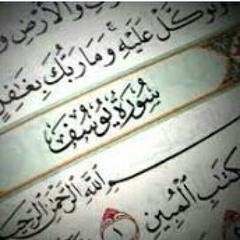 وَٱلْأَرْضِ وَ
وَتَوَكَّلْ عَلَيْهِ وَمَا رَبُّكَ بِغَٰفِلٍ
سُورَةُ يُوسُفَ
بِسْمِ ٱللَّهِ ٱلرَّحْمَٰنِ ٱلرَّحِيمِ
كِتَٰبِ ٱلْمُبِينِ ١